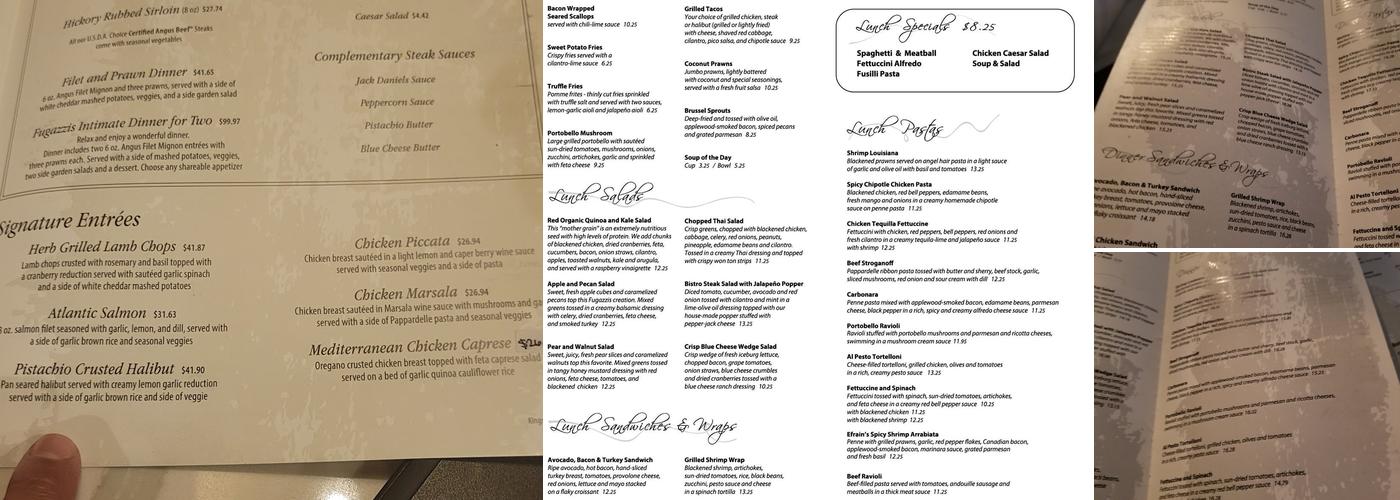 Hickory Rubbed Sirloin (8 oz) $27.74
All our U.S.D.A. Choice Certified Angus Beef™ Steaks
come with seasonal vegetables
Filet and Prawn Dinner $41.65
6 oz. Angus Filet Mignon and three prawns, served with a side of
white cheddar mashed potatoes, veggies, and a side garden salad
Fugazzis Intimate Dinner for Two $99.97
Relax and enjoy a wonderful dinner.
Dinner includes two 6 oz. Angus Filet Mignon entrées with
three prawns each. Served with a side of mashed potatoes, veggies,
two side garden salads and a dessert. Choose any shareable appetizer
Caesar Salad $4.42
Complementary Steak Sauces
Jack Daniels Sauce
Peppercorn Sauce
Pistachio Butter
Blue Cheese Butter
Signature Entrées
Herb Grilled Lamb Chops $41.87
Lamb chops crusted with rosemary and basil topped with
a cranberry reduction served with sautéed garlic spinach
and a side of white cheddar mashed potatoes
Atlantic Salmon $31.63
8 oz. salmon filet seasoned with garlic, lemon, and dill, served with
a side of garlic brown rice and seasonal veggies
Pistachio Crusted Halibut $41.90
Pan seared halibut served with creamy lemon garlic reduction
with a side of garlic brown rice and side of veggie
Chicken Piccata $26.94
Chicken breast sautéed in a light lemon and caper berry wine sauce
served with seasonal veggies and a side of pasta
Chicken Marsala $26.94
Chicken breast sautéed in Marsala wine sauce with mushrooms and
served with a side of Pappardelle pasta and seasonal veggies
Mediterranean Chicken Caprese
Oregano crusted chicken breast topped with feta caprese salad
served on a bed of garlic quinoa cauliflower rice
Bacon Wrapped
Seared Scallops
served with chili-lime sauce 10.25
Sweet Potato Fries
Crispy fries served with a
cilantro-lime sauce 6.25
Truffle Fries
Pomme frites - thinly cut fries sprinkled
with truffle salt and served with two sauces,
lemon-garlic aioli and jalapeño aioli 6.25
Portobello Mushroom
Large grilled portobello with sautéed
sun-dried tomatoes, mushrooms, onions,
zucchini, artichokes, garlic and sprinkled
with feta cheese 9.25
Grilled Tacos
Your choice of grilled chicken, steak
or halibut (grilled or lightly fried)
with cheese, shaved red cabbage,
cilantro, pico salsa, and chipotle sauce 9.25
Coconut Prawns
Jumbo prawns, lightly battered
with coconut and special seasonings,
served with a fresh fruit salsa 10.25
Brussel Sprouts
Deep-fried and tossed with olive oil,
applewood-smoked bacon, spiced pecans
and grated parmesan 8.25
Soup of the Day
Cup 3.25 / Bowl 5.25
Lunch Salads
Red Organic Quinoa and Kale Salad
This "mother grain" is an extremely nutritious
seed with high levels of protein. We add chunks
of blackened chicken, dried cranberries, feta,
cucumbers, bacon, onion straws, cilantro,
apples, toasted walnuts, kale and arugula,
and served with a raspberry vinaigrette 12.25
Apple and Pecan Salad
Sweet, fresh apple cubes and caramelized
pecans top this Fugazzis creation. Mixed
greens tossed in a creamy balsamic dressing
with celery, dried cranberries, feta cheese,
and smoked turkey 12.25
Pear and Walnut Salad
Sweet, juicy, fresh pear slices and caramelized
walnuts top this favorite. Mixed greens tossed
in tangy honey mustard dressing with red
onions, feta cheese, tomatoes, and
blackened chicken 12.25
Chopped Thai Salad
Crisp greens, chopped with blackened chicken,
cabbage, celery, red onions, peanuts,
pineapple, edamame beans and cilantro.
Tossed in a creamy Thai dressing and topped
with crispy won ton strips 11.25
Bistro Steak Salad with Jalapeño Popper
Diced tomato, cucumber, avocado and red
onion tossed with cilantro and mint in a
lime-olive oil dressing topped with our
house-made popper stuffed with
pepper-jack cheese 13.25
Crisp Blue Cheese Wedge Salad
Crisp wedge of fresh iceburg lettuce,
chopped bacon, grape tomatoes,
red onions, blue cheese crumbles
and dried cranberries tossed in a
blue cheese ranch dressing 10.25
Lunch Sandwiches & Wraps
Avocado, Bacon & Turkey Sandwich
Ripe avocado, hot bacon, hand-sliced
turkey breast, tomatoes, provolone cheese,
red onions, lettuce and mayo stacked
on a flaky croissant 12.25
Grilled Shrimp Wrap
Blackened shrimp, artichokes,
sun-dried tomatoes, rice, black beans,
zucchini, pesto sauce and cheese
in a spinach tortilla 13.25
Lunch Specials $8.25
Spaghetti & Meatball
Fettuccini Alfredo
Fusilli Pasta
Chicken Caesar Salad
Soup & Salad
Lunch Pastas
Shrimp Louisiana
Blackened prawns served on angel hair pasta in a light sauce
of garlic and olive oil with basil and tomatoes 13.25
Spicy Chipotle Chicken Pasta
Blackened chicken, red bell peppers, edamame beans,
fresh mango and onions in a creamy homemade chipotle
sauce on penne pasta 11.25
Chicken Tequila Fettuccine
Fettuccini with chicken, red peppers, bell peppers, red onions and
fresh cilantro in a creamy tequila-lime and jalapeño sauce 11.25
with shrimp 12.25
Beef Stroganoff
Pappardelle ribbon pasta tossed with butter and sherry, beef stock, garlic,
sliced mushrooms, red onion and sour cream with dill 12.25
Carbonara
Penne pasta mixed with applewood-smoked bacon, edamame beans, parmesan
cheese, black pepper in a rich, spicy and creamy alfredo cheese sauce 11.25
Portobello Ravioli
Ravioli stuffed with portobello mushrooms and parmesan and ricotta cheeses,
swimming in a mushroom cream sauce 11.95
Al Pesto Tortelloni
Cheese-filled tortelloni, grilled chicken, olives and tomatoes
in a rich, creamy pesto sauce 13.25
Fettuccine and Spinach
Fettuccini tossed with spinach, sun-dried tomatoes, artichokes,
and feta cheese in a creamy red bell pepper sauce 10.25
with blackened chicken 11.25
with blackened shrimp 12.25
Efrain's Spicy Shrimp Arrabiata
Penne with grilled prawns, garlic, red pepper flakes, Canadian bacon,
applewood-smoked bacon, marinara sauce, grated parmesan
and fresh basil 12.25
Beef Ravioli
Beef-filled pasta served with tomatoes, andouille sausage and
meatballs in a thick meat sauce 11.25
Pear and Walnut Salad
Dinner Sandwiches & Wraps
Avocado, Bacon & Turkey Sandwich
flaky croissant 14.18
Chicken Sandwich
Grilled Shrimp Wrap
Blackened shrimp, artichokes,
sun-dried tomatoes, rice, black beans,
zucchini, pesto sauce and cheese
in a spinach tortilla
Beef Stroganoff
Carbonara
Portobello Ravioli
Al Pesto Tortelloni
Fettuccine and
Carbonara
Portobello Ravioli
Al Pesto Tortelloni
Cheese-filled tortelloni, grilled chicken, olives and tomatoes
in a rich, creamy pesto sauce
Fettuccine and Spinach